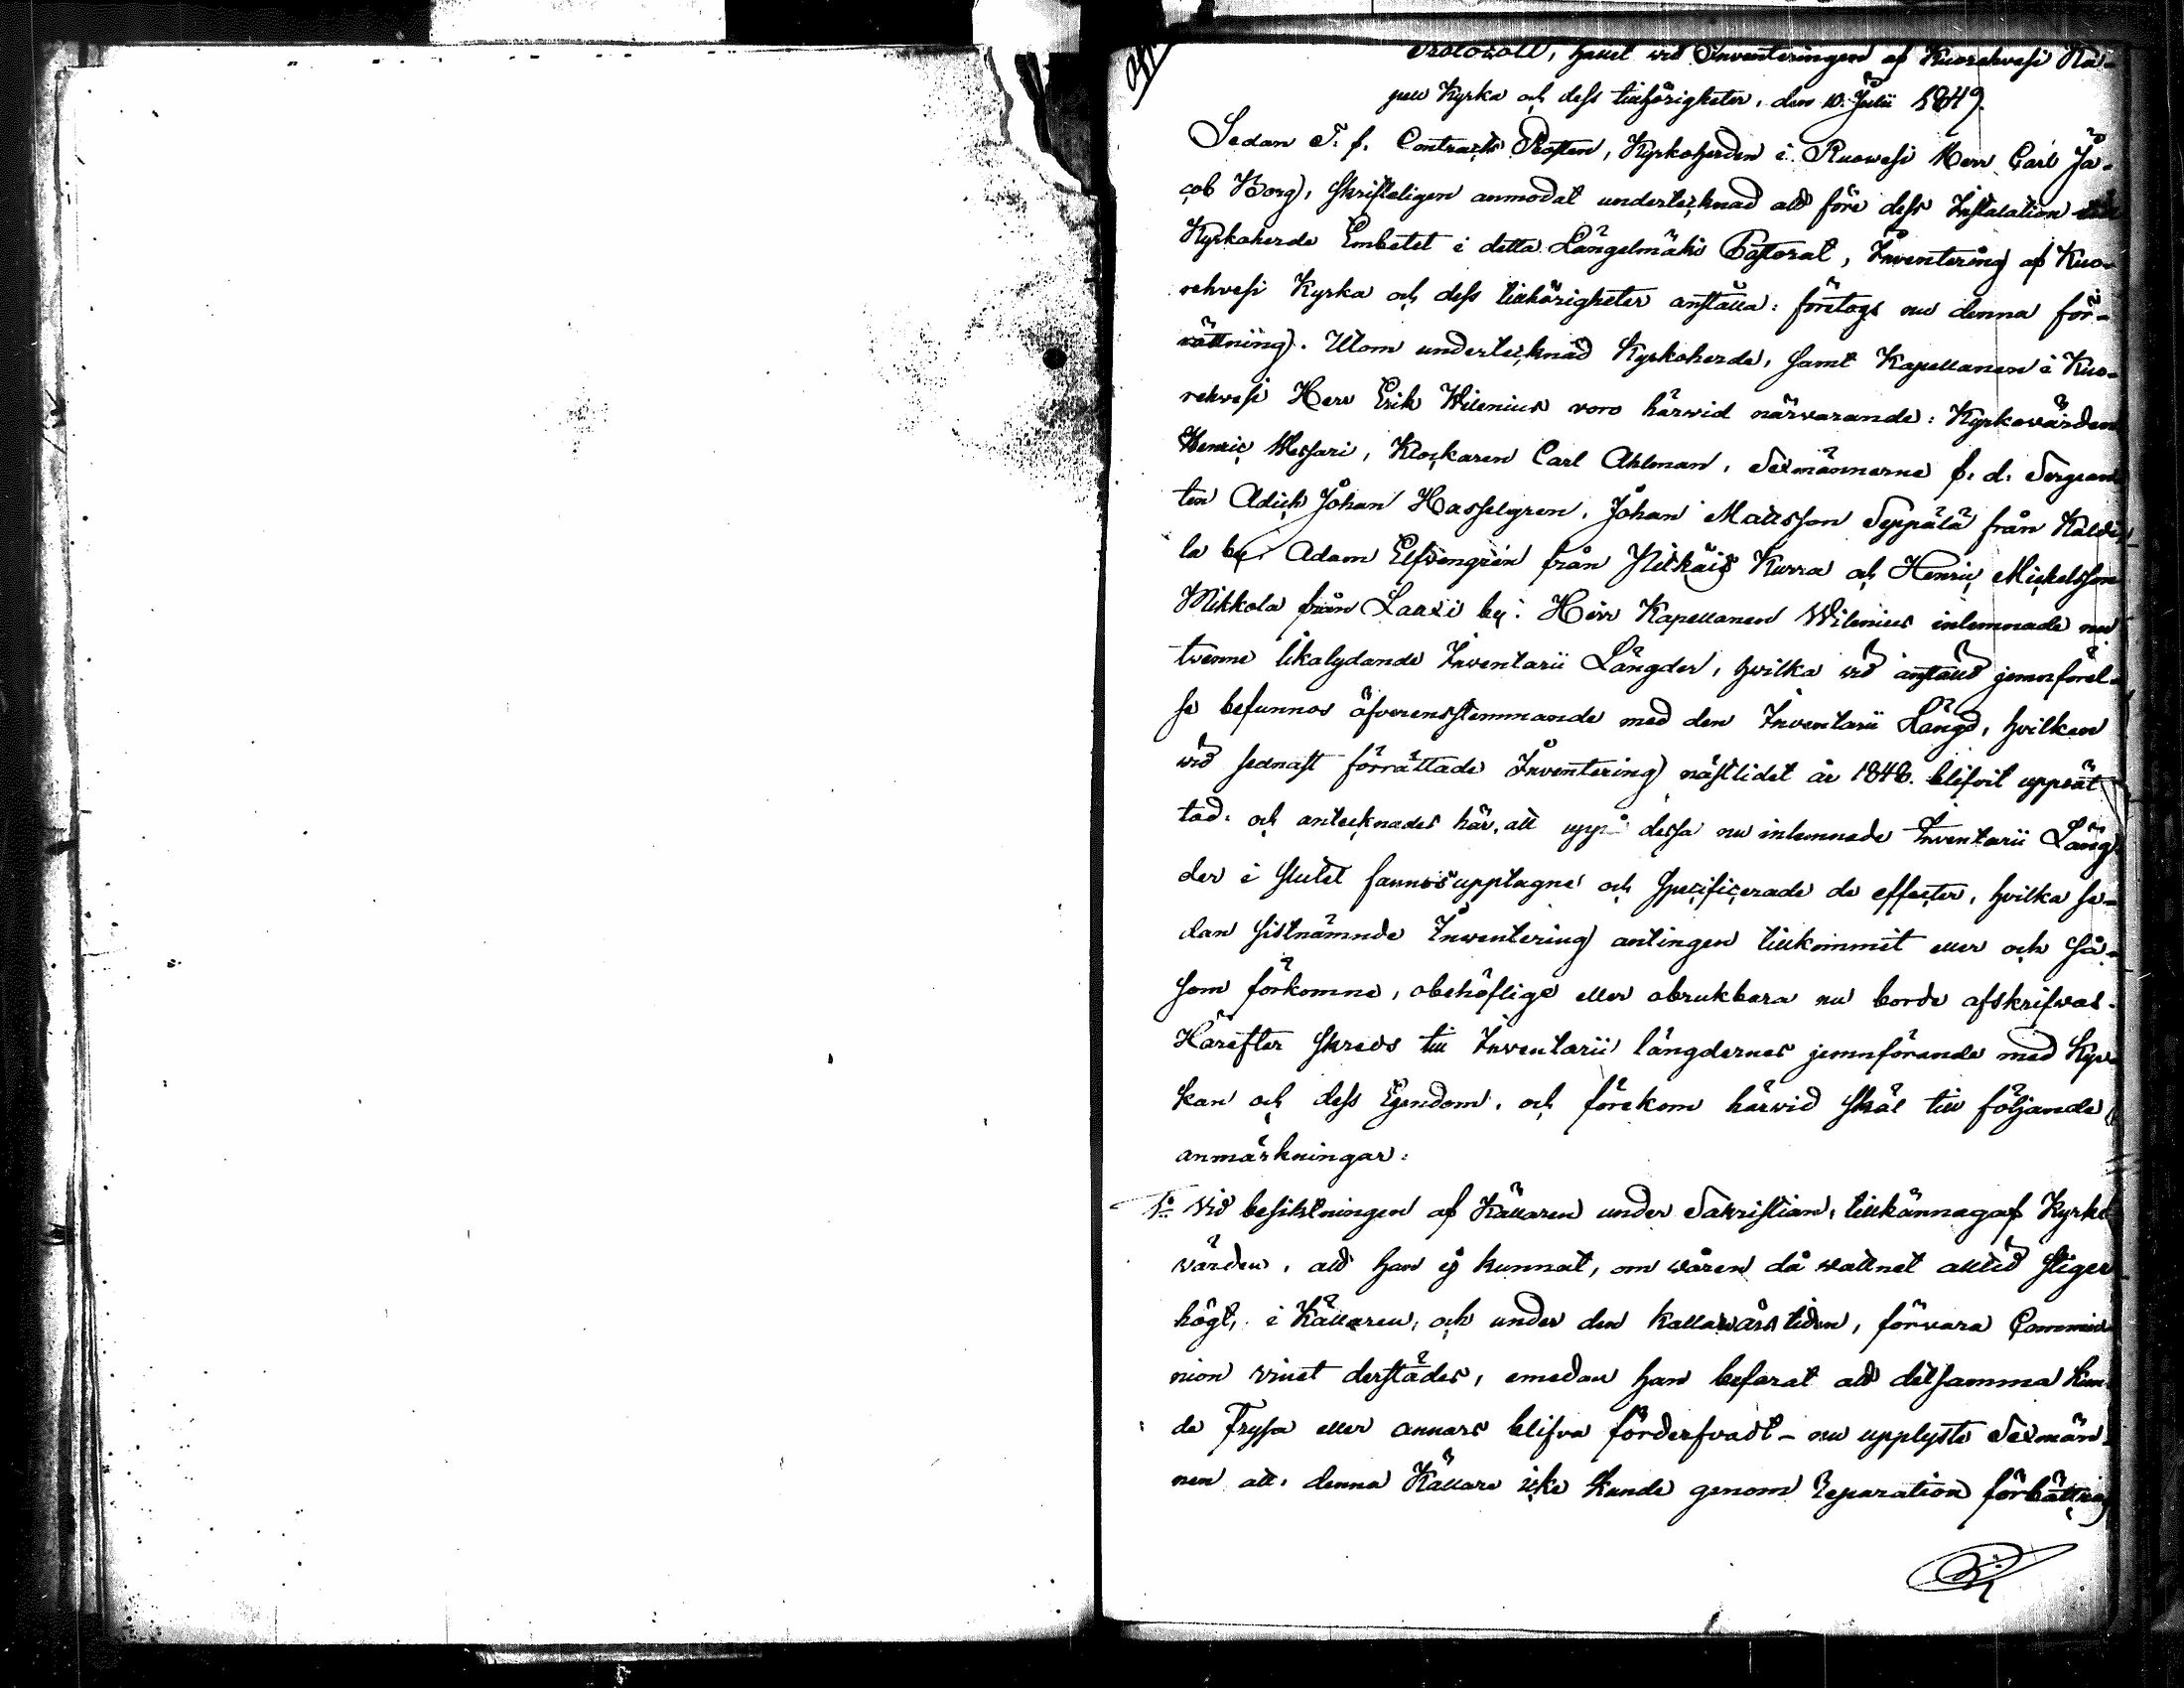 Protocoll, hållet wid Inventeringen af Kuorehvesi Ka-
pell Kyrka och dess tillhörigheter, den 10. Julii 1849.
Sedan T. f. Contracts Prosten, Kyrkoherden i Ruowesi Herr Carl Ja-
cob Borg, skrifteligen anmodat undertecknad att före dess Installation till
Kyrkoherde Embetet i detta Längelmäki Pastorat, Inventering af Kuo-
rehvesi Kyrka och dess tillhörigheter anställa: företogs nu denna för-
rättning. Utom undertecknad Kyrkoherde, samt Kapellanen i Kuo-
rehvesi Herr Erik Wilenius voro härwid närvarande: Kyrkovärden
Henric Messari, Klockaren Carl Ahlman, Sexmännerne f. d. Sergean
ten Adich Johan Hasselgren, Johan Mattsson Seppälä från
la by, Adam Elfvengrén från Pitkäis Kurra och Henric Mickelsson
Mikkola från Laaxi by. Herr Kapellanen Wilenius inlemnade nu
tvenne likalydande Inventarii Längder, hvilka vid anstäld jemnförel-
se befunnos öfverensstemmande med den Inventarii Längd, hvilken
wid sednast förrättade Inventering nästlidet år 1848. blifvit upprät
tad: och antecknades här, att uppå dessa nu inlemnade Inventarii Läng
der i slutet funnos upptagne och specificerade de effecter, hvilka se-
dan sistnämnde Inwentering antingen tillkommit eller och så-
som förkomne, obehöflige eller obrukbara nu borde afskrifvas.
Härefter skreds till Inventarii längdernes jemnförande med Kyr-
kan och dess Egendom, och förekom härvid skäl till följande
anmärkningar:
1:o Vid besiktningen af Källaren under Sakristian, tillkännagaf Kyrko
värden, att han ej kunnat, om våren då vattnet alltid stiger
högt, i Källaren, och under den kallare årstiden, förvara Commu-
nion vinet derstädes, emedan han befarat att detsamma kun-
de frysa eller annars blifva förderfvadt - nu upplyste Sexmän-
nen att, denna Källare icke kunde genom Reparation förbättras